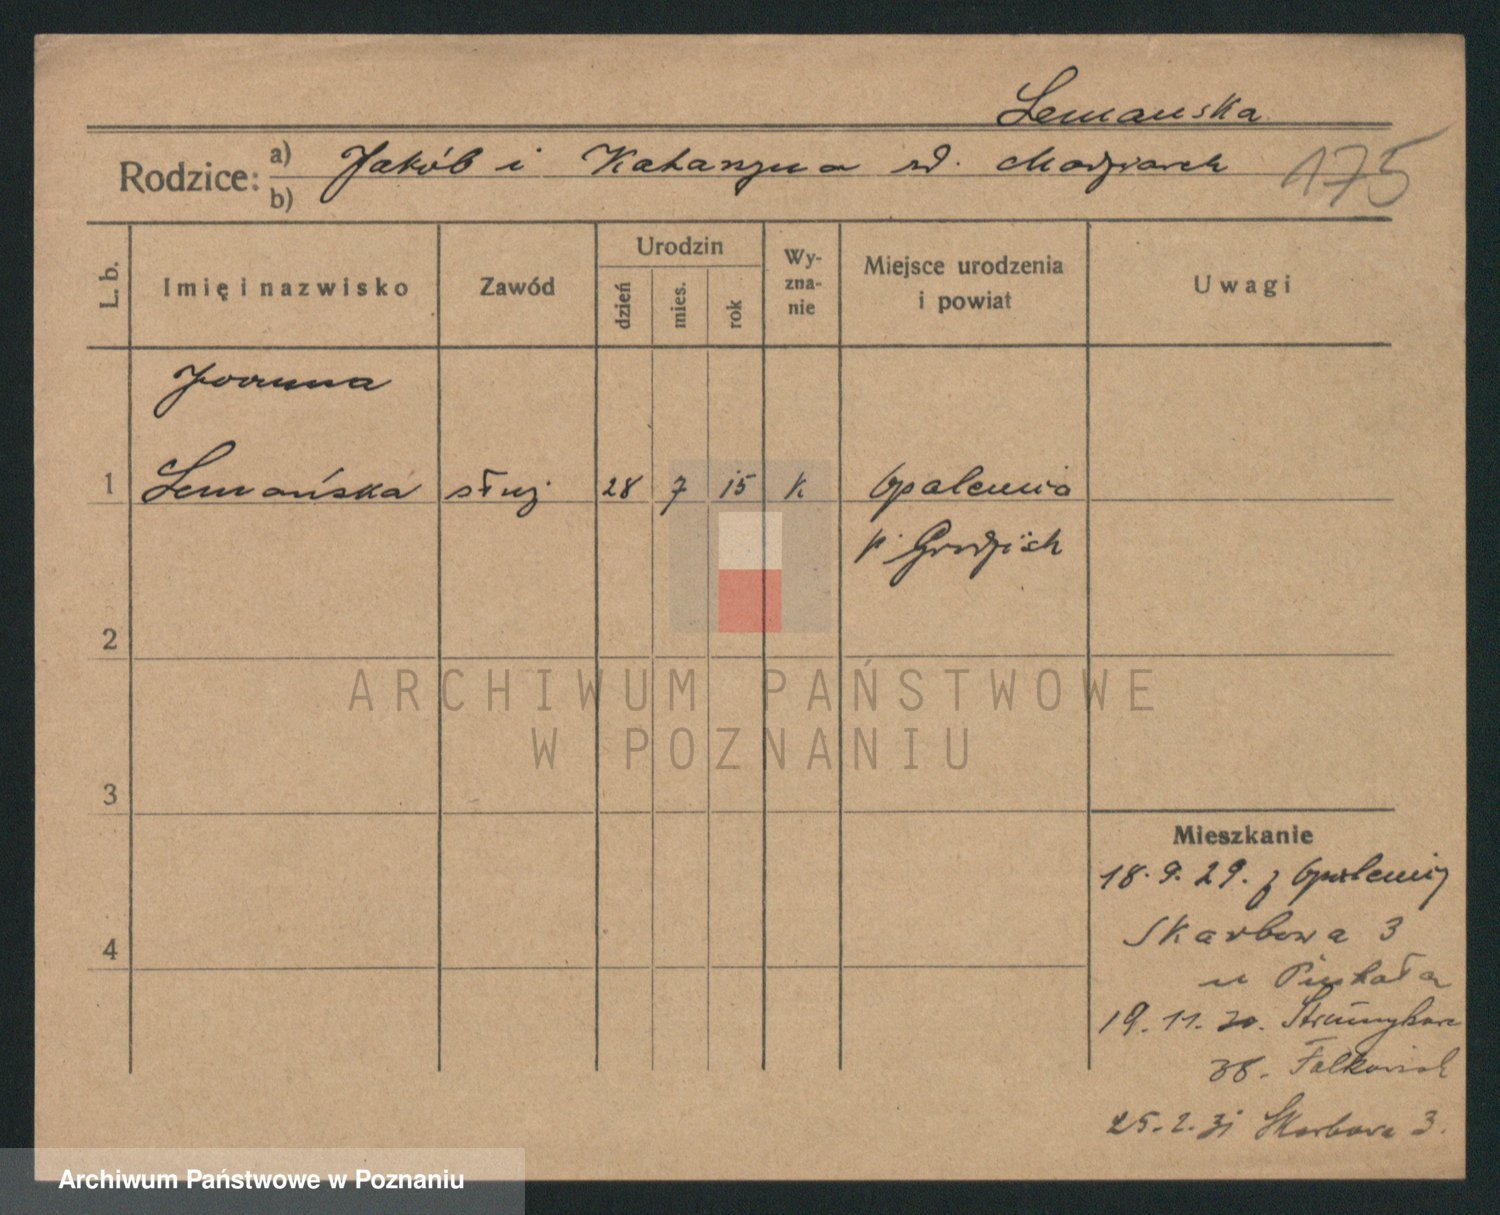 Lemanska
Rodzice: a) Jakób i Katarzyna
b)
175
L. b.
Imię i nazwisko
Zawód
Urodzin
dzień
mies.
rok
Wy-
zna-
nie
Miejsce urodzenia
i powiat
Uwagi
Joanna
1 Lemańska służ 28 7 15 k Opalenica
p. Grodzisk
2
ARCHIWUM PAŃSTWOWE
W POZNANIU
3
Mieszkanie
18. 9. 29. z Opalenicy
Skarbowa 3
4
u
19. 11. 30.
38. Falkowiak
25. 2. 31 Skarbowa 3.
Archiwum Państwowe w Poznaniu